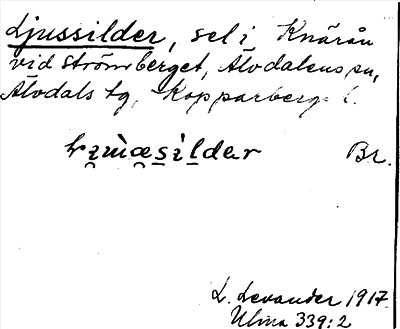 Ljussilder, sel i Knärån
vid Strömsberget, Älvdalens sn,
Älvdals tg, Kopparbergs l.
Br.
L. Levander 1917.
Ulma 339:2